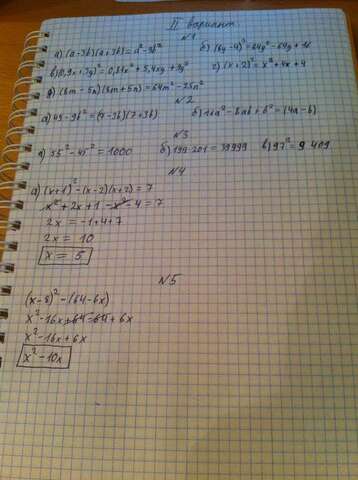 II вариант.
N1
а) (a-3b)(a+3b)=a²-9b² б) (8y-4)²=64y²-64y+16
в)(0,9x+3y)²=0,81x²+5,4xy+9y² г) (x+2)²=x²+4x+4
д) (8m-5n)(8m+5n)=64m²-25n²
N2
а) 49-9b²=(7-3b)(7+3b) б) 16a²-8ab+b²=(4a-b)
N3
а) 55²-45²=1000 б) 199·201=39999 в) 97²=9409
N4
а) (x+1)²-(x-2)(x+2)=7
x²+2x+1-x²-4=7
2x=-1+4+7
2x=10
x=5
N5
(x-8)²-(64-6x)
x²-16x+64-64+6x
x²-16x+6x
x²-10x